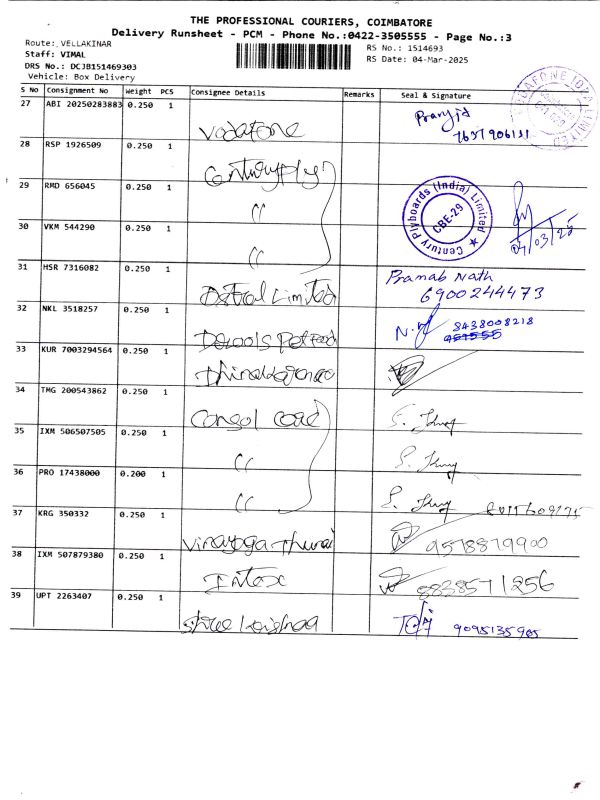 THE PROFESSIONAL COURIERS, COIMBATORE
Delivery Runsheet - PCM - Phone No.:0422-3505555 - Page No.:3
Route: VELLAKINAR
RS No.: 1514693
Staff: VIMAL
RS Date: 04-Mar-2025
DRS No.: DCJB151469303
Vehicle: Box Delivery
S No Consignment No Weight PCS Consignee Details Remarks Seal & Signature
27 ABI 20250283883 0.250 1
Vodafone
28 RSP 1926509 0.250 1
Centuryply
29 RMD 656045 0.250 1
"
Century Plyboards (India) Limited
CBE-29
30 VKM 544290 0.250 1
"
04/03/25
31 HSR 7316082 0.250 1
Astral Limited
Pranab Nath
6900244473
32 NKL 3518257 0.250 1
8438008218
33 KUR 7003294564 0.250 1
34 TMG 200543862 0.250 1
35 IXM 506507505 0.250 1
"
36 PRO 17438000 0.200 1
"
37 KRG 350332 0.250 1
9578879900
38 IXM 507879380 0.250 1
Intex
8838571256
39 UPT 2263407 0.250 1
Shree Krishnaa
9095135905